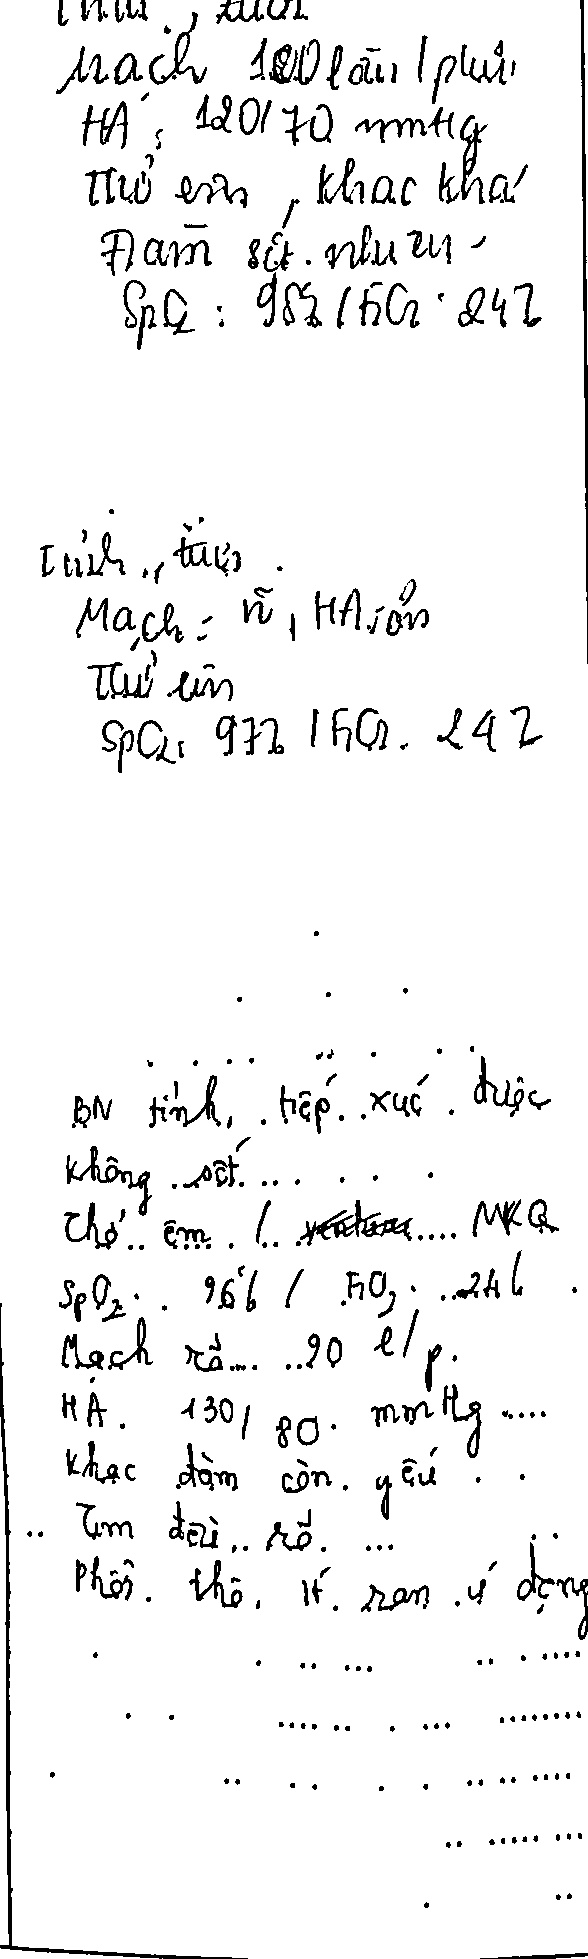 Mạch 100 lần / phút
HA: 120/70 mmHg
Thở êm, khạc khá
Đàm
SpO2: 98% / FiO2: 24%
Tỉnh, tươi
Mạch: rõ, HA: ổn
Thở êm
SpO2: 97% / FiO2. 24%
BN tỉnh, tiếp xúc được
Không sốt
Thở êm / MKQ
SpO2: 96% / FiO2: 24%
Mạch rõ 90 l/p.
HA. 130/80. mmHg
Khạc đàm còn yếu
Tim đều rõ.
Phổi. thô, ít ran ứ đọng